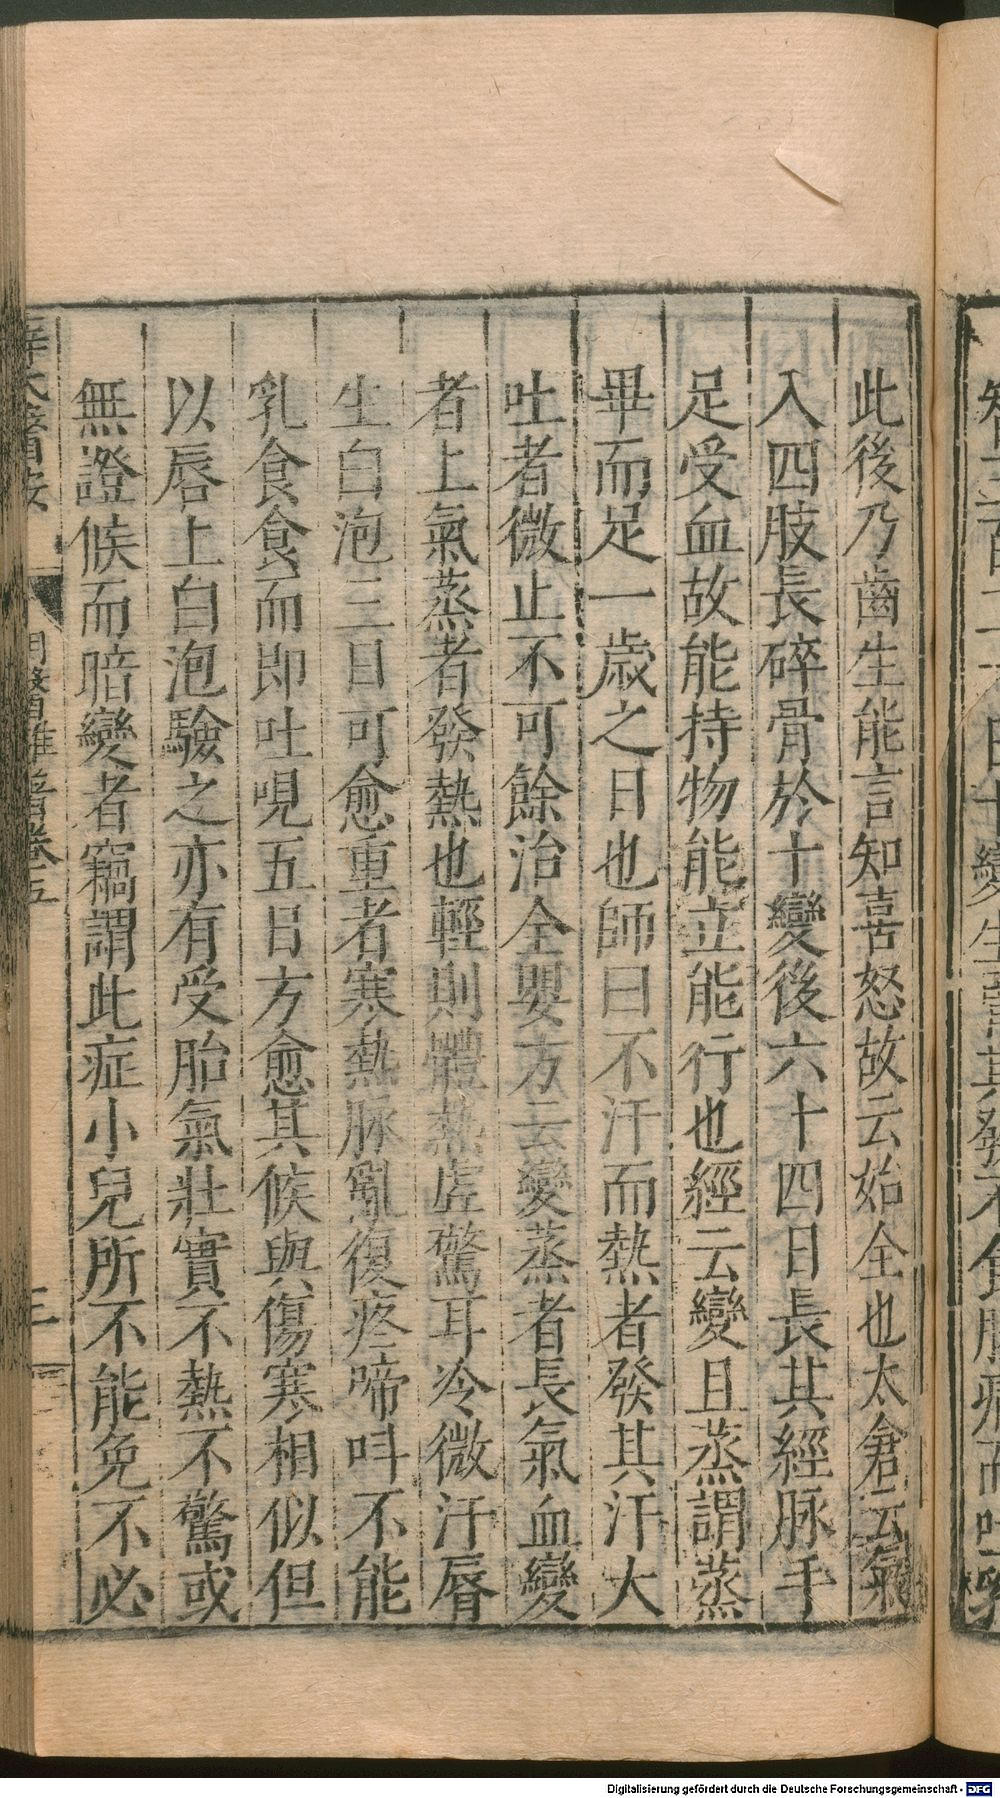 此後乃齒生能言知喜怒故云始全也太倉云氣
入四肢長碎骨於十變後六十四日長其經脉手
足受血故能持物能立能行也經云變且蒸謂蒸
畢而足一歲之日也師曰不汗而熱者發其汗大
吐者微止不可餘治全嬰方云變蒸者長氣血變
者上氣蒸者發熱也輕則體熱虛驚耳冷微汗唇
生白泡三日可愈重者寒熱脉亂復疼啼呌不能
乳食食而即吐哯五日方愈其候與傷寒相似但
以唇上白泡驗之亦有受胎氣壯實不熱不驚或
無證候而暗變者竊謂此症小兒所不能免不必
薛氏醫按
明醫雜著卷五
三
Digitalisierung gefördert durch die Deutsche Forschungsgemeinschaft - DFG